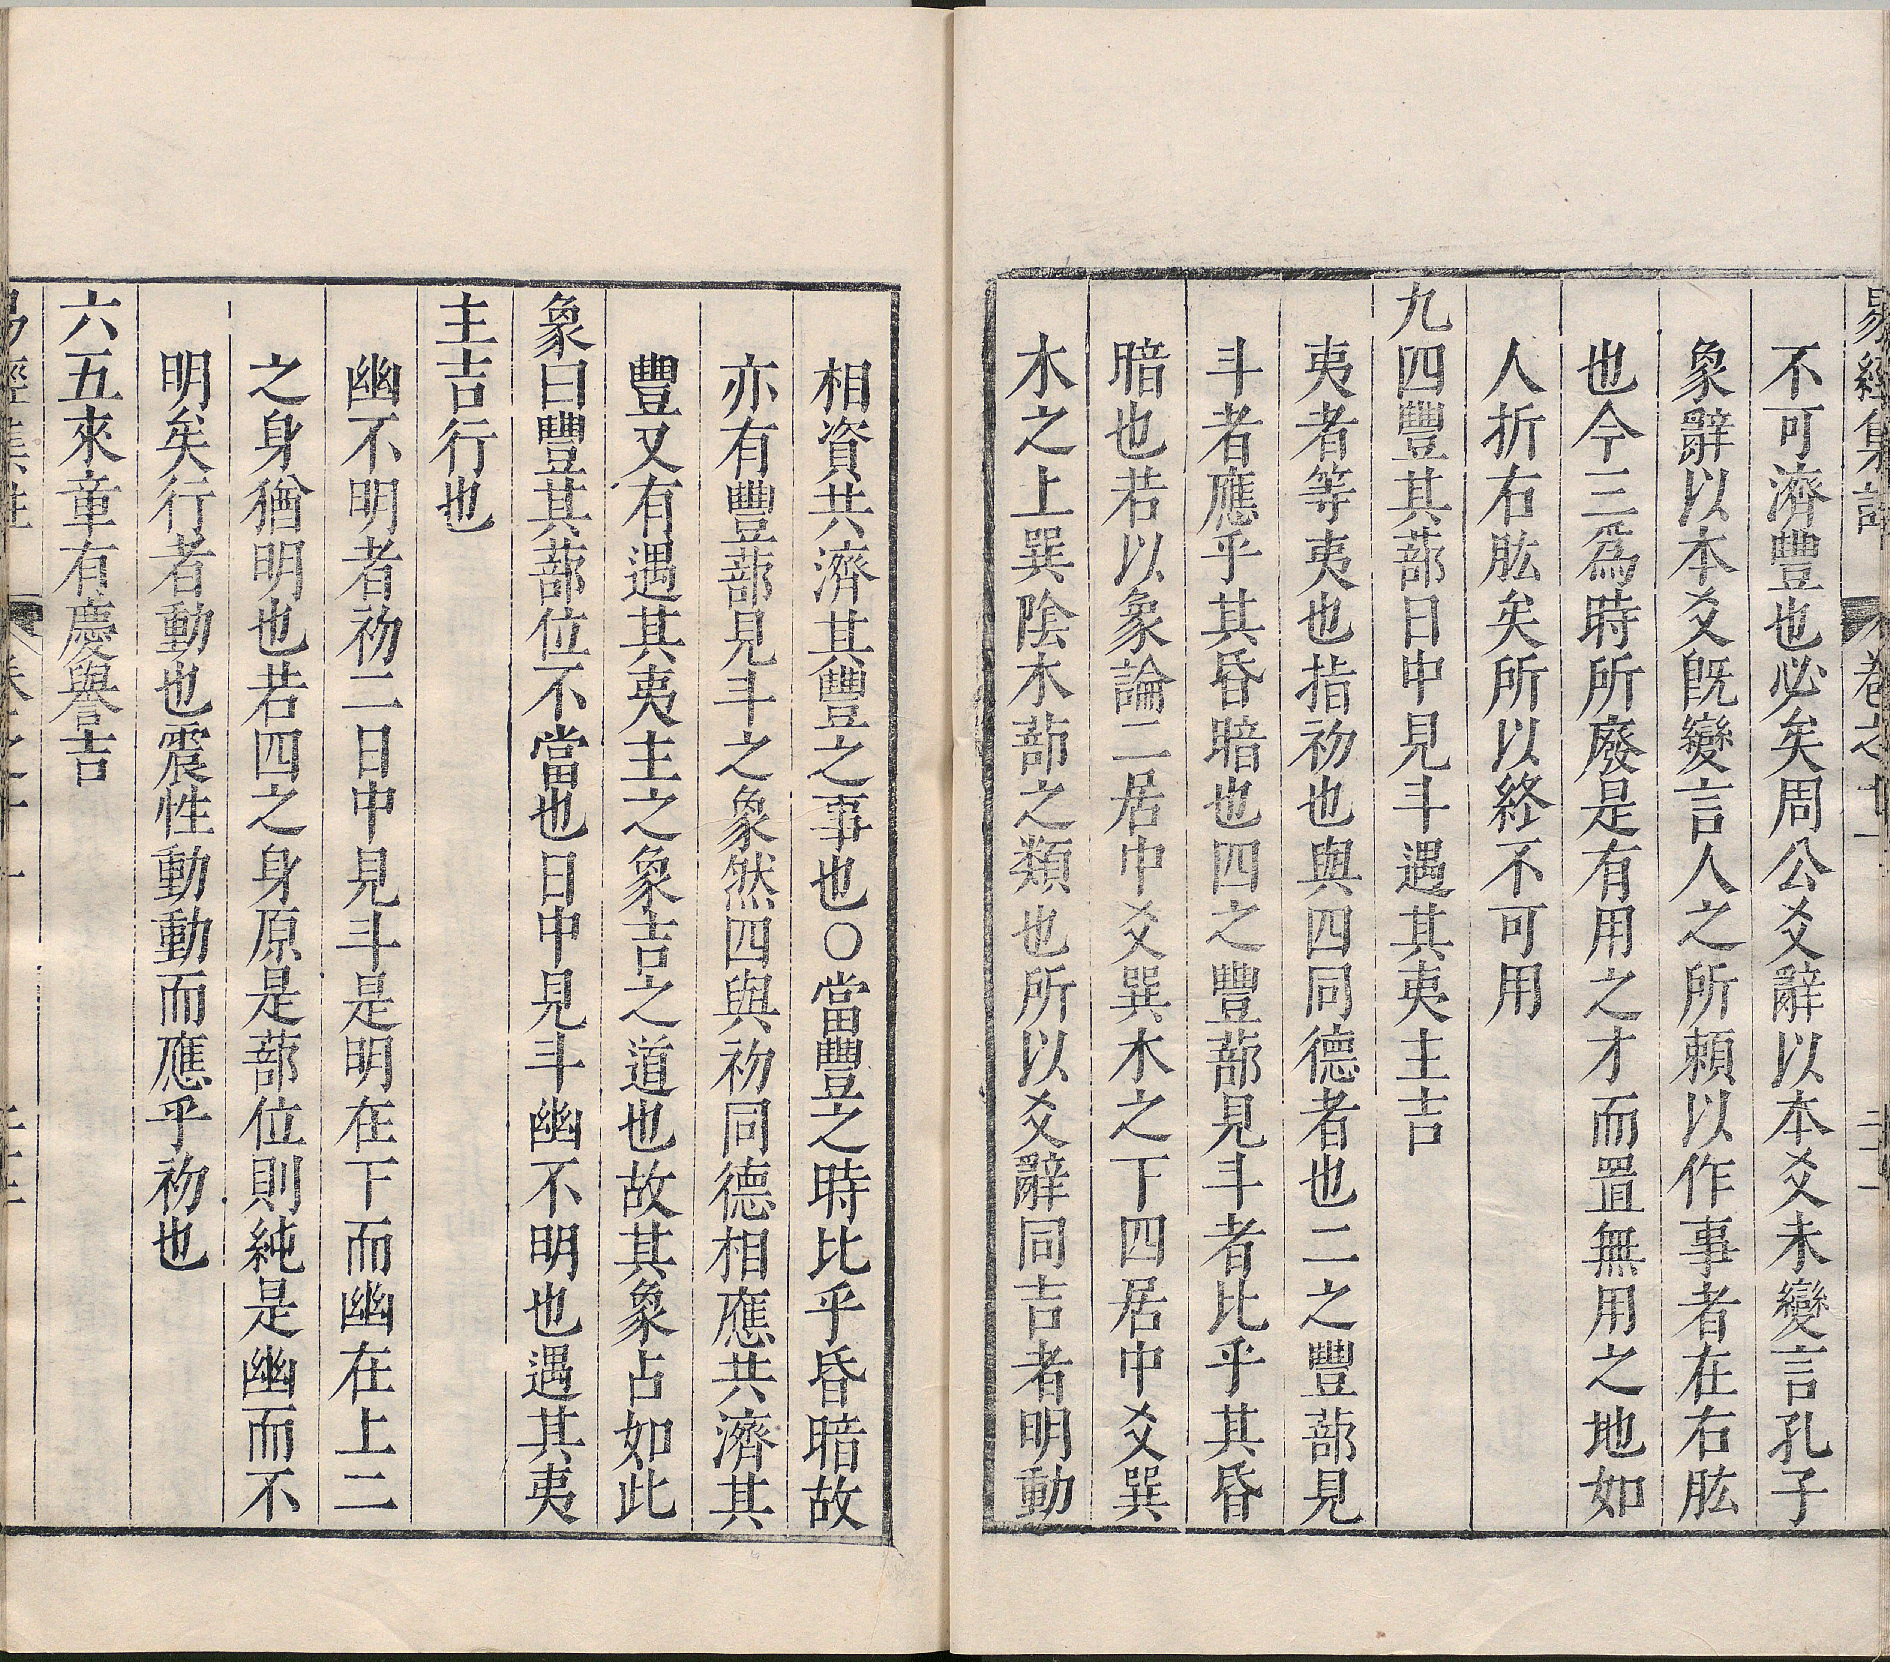 易經集註 卷之十一 二十一
不可濟豐也必矣周公爻辭以本爻未變言孔子
象辭以本爻旣變言人之所頼以作事者在右肱
也今三爲時所廢是有用之才而置無用之地如
人折右肱矣所以終不可用
九四豐其蔀日中見斗遇其夷主吉
夷者等夷也指初也與四同德者也二之豐蔀見
斗者應乎其昏暗也四之豐蔀見斗者比乎其昏
暗也若以象論二居中爻巽木之下四居中爻巽
木之上巽陰木蔀之類也所以爻辭同吉者明動
相資共濟其豐之事也○當豐之時比乎昏暗故
亦有豐蔀見斗之象然四與初同德相應共濟其
豐又有遇其夷主之象吉之道也故其象占如此
象曰豐其蔀位不當也日中見斗幽不明也遇其夷
主吉行也
幽不明者初二日中見斗是明在下而幽在上二
之身猶明也若四之身原是蔀位則純是幽而不
明矣行者動也震性動動而應乎初也
六五來章有慶譽吉